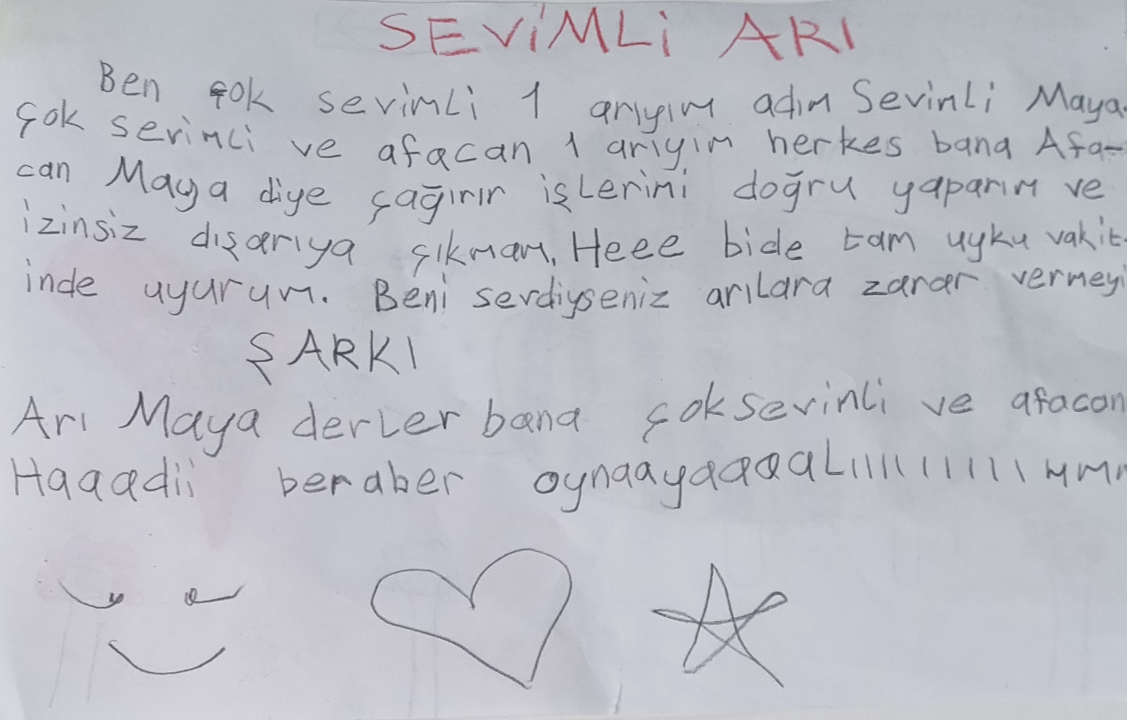 SEVİMLİ ARI
Ben çok sevimli 1 arıyım adım Sevimli Maya.
çok sevimli ve afacan 1 arıyım herkes bana Afa-
can Maya diye çağırır işlerimi doğru yaparım ve
izinsiz dışarıya çıkmam. Heee bide tam uyku vakit-
inde uyurum. Beni sevdiyseniz arılara zarar vermeyi
ŞARKI
Arı Maya derler bana çok sevimli ve afacan
Haaadii beraber oynaayaaaaLıııııııııımmm